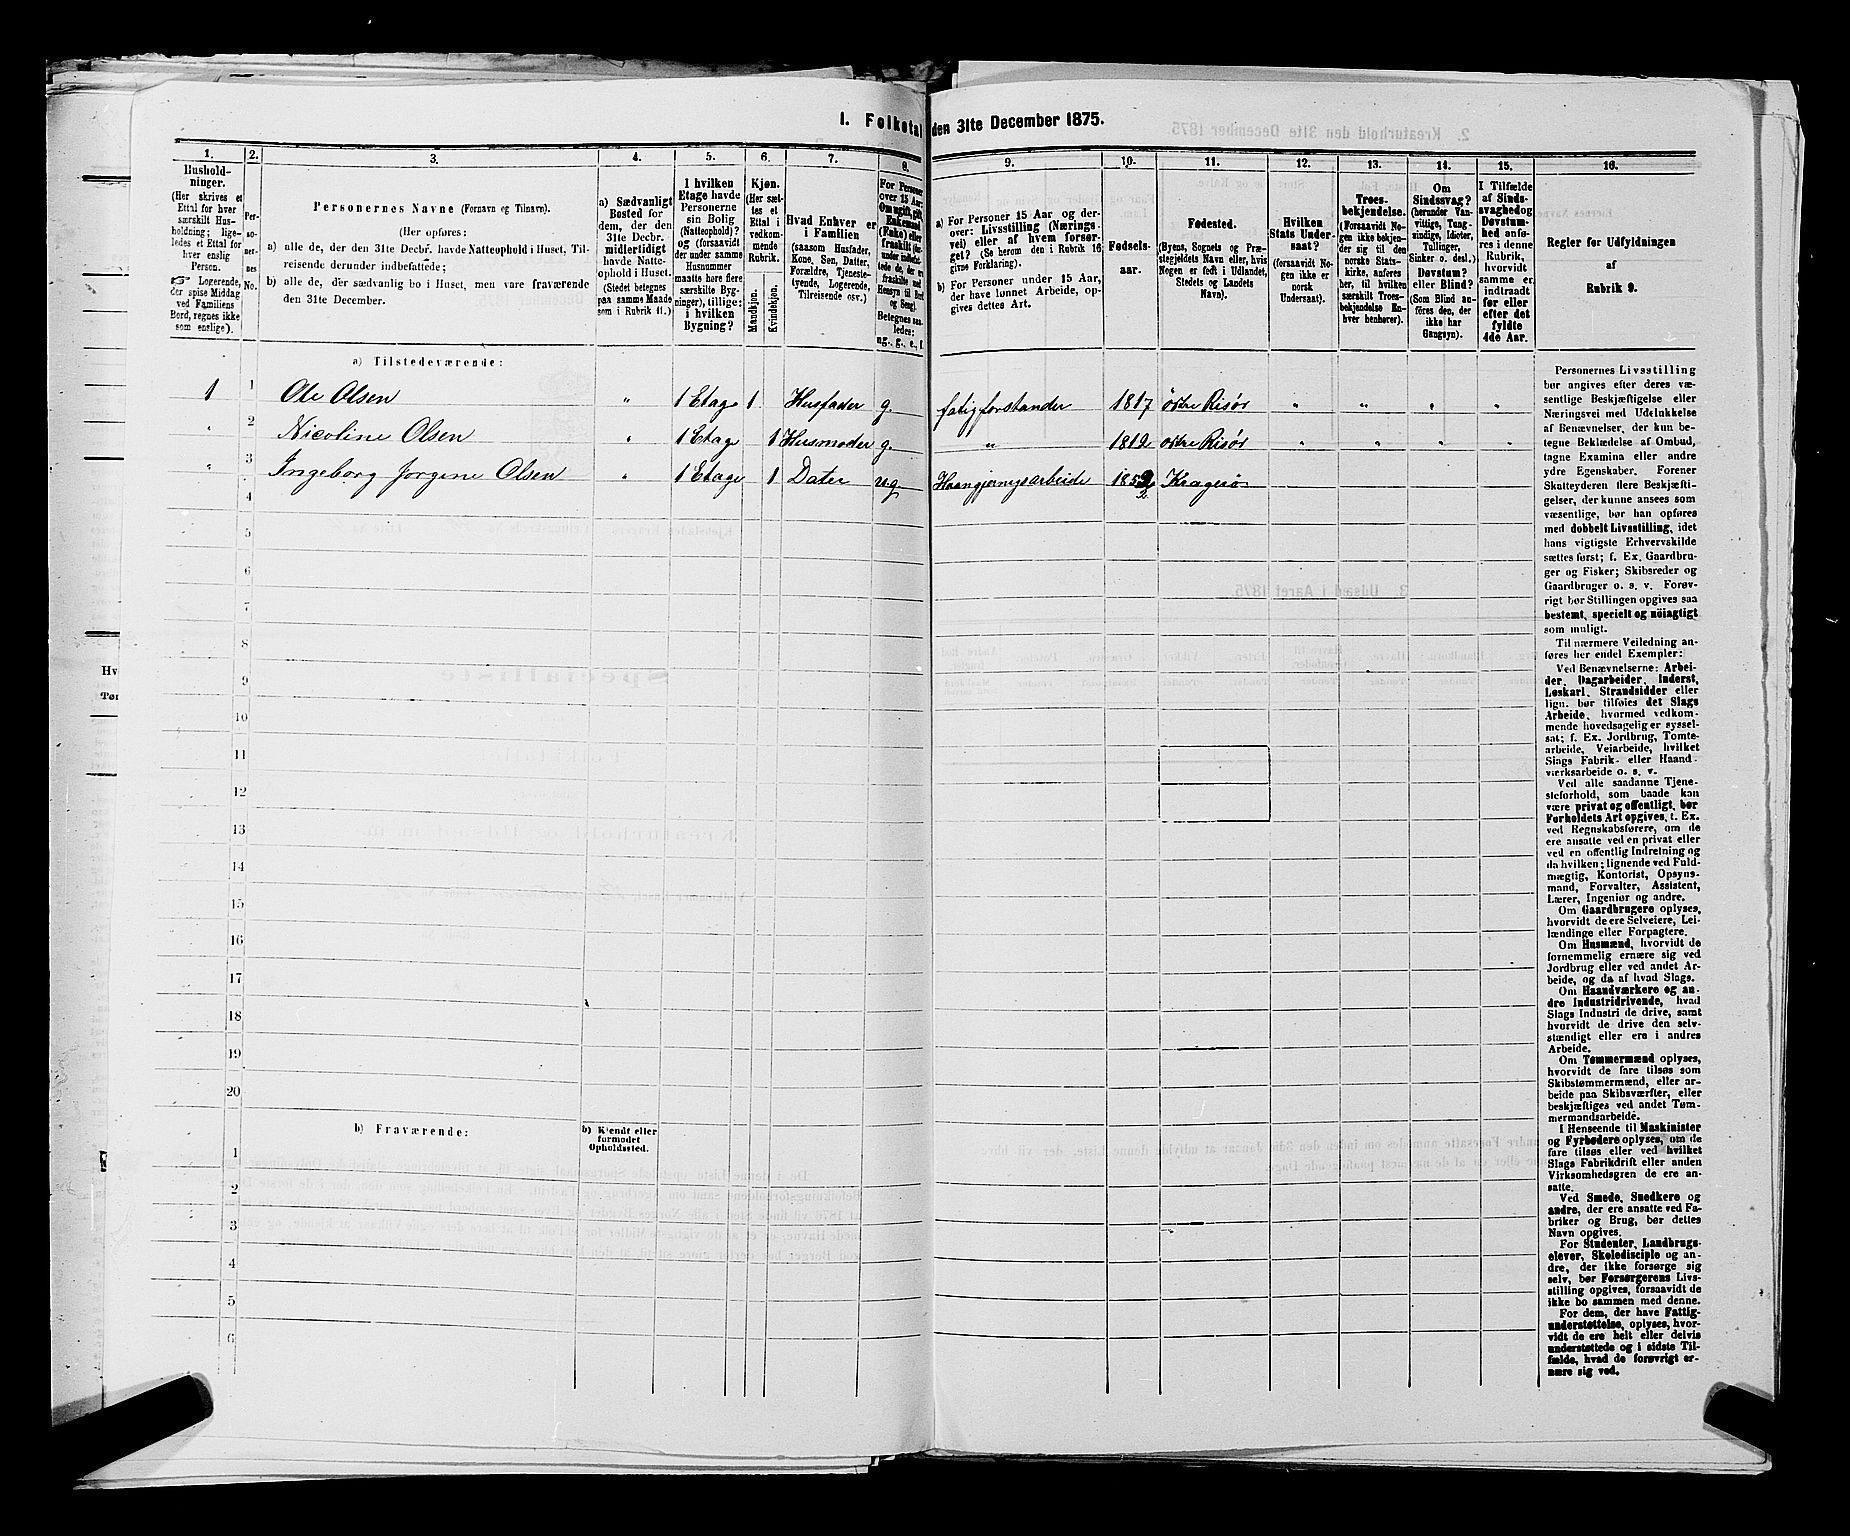 1. Folketal den 31te December 1875.
1. 2. 3. 4. 5. 6. 7. 8. 9. 10. 11. 12. 13. 14. 15. 16.
Hushold-
ninger.
(Her skrives et
Ettal for hver
særskilt Hus-
holdning; lige-
ledes et Ettal for
hver enslig
Person.
☞ Logerende,
der spise Middag
ved Familiens
Bord, regnes ikke
som enslige).
Per-
so-
ner-
nes
No.
Personernes Navne (Fornavn og Tilnavn).
(Her opføres:
a) alle de, der den 31te Decbr. havde Natteophold i Huset, Til-
reisende derunder indbefattede;
b) alle de, der sædvanlig bo i Huset, men vare fraværende
den 31te December.
a) Sædvanligt
Bosted for
dem, der den
31te Decbr.
midlertidigt
havde Natte-
ophold i Huset.
(Stedet betegnes
paa samme Maade
som i Rubrik 11.)
I hvilken
Etage havde
Personerne
sin Bolig
(Natteophold)?
og (forsaavidt
der under samme
Husnummer
maatte høre flere
særskilte Byg-
ninger), tillige:
i hvilken
Bygning?
Kjøn.
(Her sæt-
tes et
Ettal i
vedkom-
mende
Rubrik.
Mandkjøn.
Kvindekjøn.
Hvad Enhver er
i Familien
(saasom Husfader,
Kone, Søn, Datter,
Forældre, Tjeneste-
tyende, Logerende,
Tilreisende osv.)
For Personer
over 15 Aar:
Om ugift, gift,
Enkemand
(Enke) eller
fraskilt
Betegnes saa-
ledes:
ug., g., e., f.
a) For Personer 15 Aar og der-
over: Livsstilling (Nærings-
vei) eller af hvem forsør-
get? (Se herom den i Rubrik 16
givne Forklaring).
b) For Personer under 15 Aar,
der have lønnet Arbeide, op-
gives dettes Art.
Fødsels-
aar.
Fødested.
(Byens, Sognets og Præ-
stegjeldets Navn eller, hvis
Nogen er født i Udlandet,
Stedets og Landets
Navn).
Hvilken
Stats Under-
saat?
(forsaavidt No-
gen ikke er
norsk
Undersaat).
Troes-
bekjendelse.
(Forsaavidt No-
gen ikke bekjen-
der sig til den
norske Stats-
kirke, anføres
her, til hvilken
særskilt Troes-
bekjendelse En-
hver henhører).
Om
Sindssvag?
(herunder Van-
vittige, Tung-
sindige, Idioter,
Tullinger,
Sinker o. desl.)
Døvstum?
eller Blind?
(Som Blind an-
føres den, der
ikke har
Gangsyn).
I Tilfælde
af Sinds-
svaghed og
Døvstum-
hed anfø-
res i denne
Rubrik,
hvorvidt
samme er
indtraadt
før eller
efter det
fyldte
4de Aar.
Regler for Udfyldningen
af
Rubrik 9.
a) Tilstedeværende:
1 1 Ole Olsen " 1 Etage 1 Husfader g. fatigforstander 1817 østre Risør " " " "
" 2 Nicoline Olsen " 1 Etage 1 Husmoder g. " 1812 østre Risør " " " "
" 3 Ingeborg Jorgine Olsen " 1 Etage 1 Dater ug. Haangjerningsarbeide 1852 Kragerø
4
5
6
7
8
9
10
11
12
13
14
15
16
17
18
19
20
b) Fraværende:
b) Kjendt eller
formodet
Opholdssted.
1
2
3
4
5
6
Personernes Livsstilling
bør angives efter deres væ-
sentlige Beskjæftigelse eller
Næringsvei med Udelukkelse
af Benævnelser, der kun be-
tegne Beklædelse af Ombud,
tagne Examina eller andre
ydre Egenskaber. Forener
Skatteyderen flere Beskjæfti-
gelser, der kunne ansees som
væsentlige, bør han opføres
med dobbelt Livsstilling, idet
hans vigtigste Erhvervskilde
sættes først; f. Ex. Gaardbru-
ger og Fisker; Skibsreder og
Gaardbruger o. s. v. Forøv-
rigt bør Stillingen opgives saa
bestemt, specielt og nöiagtigt
som muligt.
Til nærmere Veiledning an-
føres her endel Exempler:
Ved Benævnelserne: Arbei-
der, Dagarbeider, Inderst,
Løskarl, Strandsidder eller
lign. bør tilføies det Slags
Arbeide, hvormed vedkom-
mende hovedsagelig er syssel-
sat; f. Ex. Jordbrug, Tomte-
arbeide, Veiarbeide, hvilket
Slags Fabrik- eller Haand-
værksarbeide o. s. v.
Ved alle saadanne Tjene-
steforhold, som baade kan
være privat og offentligt, bør
Forholdets Art opgives, t. Ex.
ved Regnskabsførere, om de
ere ansatte ved en privat eller
ved en offentlig Indretning og
da hvilken; lignende ved Fuld-
mægtig, Kontorist, Opsyns-
mand, Forvalter, Assistent,
Lærer, Ingeniør og andre.
Om Gaardbrugere oplyses,
hvorvidt de ere Selveiere, Lei-
lændinge eller Forpagtere.
Om Husmænd, hvorvidt de
fornemmelig ernære sig ved
Jordbrug eller ved andet Ar-
beide, og da af hvad Slags.
Om Haandværkere og an-
dre Industridrivende, hvad
Slags Industri de drive, samt
hvorvidt de drive den selv-
stændigt eller ere i andres
Arbeide.
Om Tømmermænd oplyses,
hvorvidt de fare tilsøs som
Skibstømmermænd, eller ar-
beide paa Skibsværfter, eller
beskjæftiges ved andet Tøm-
mermandsarbeide.
I Henseende til Maskinister
og Fyrbødere oplyses, om de
fare tilsøs eller ved hvilket
Slags Fabrikdrift eller anden
Virksomhedsgren de ere an-
satte.
Ved Smede, Snedkere og
andre, der ere ansatte ved Fa-
briker og Brug, bør dettes
Navn opgives.
For Studenter, Landbrugs-
elever, Skoledisciple og an-
dre, der ikke forsørge sig
selv, bør Forsørgerens Livs-
stilling opgives, forsaavidt de
ikke bo sammen med denne.
For dem, der have Fattig-
understøttelse, oplyses, hvor-
vidt de ere helt eller delvis
understøttede og i sidste Til-
fælde, hvad de forøvrigt er-
nære sig ved.